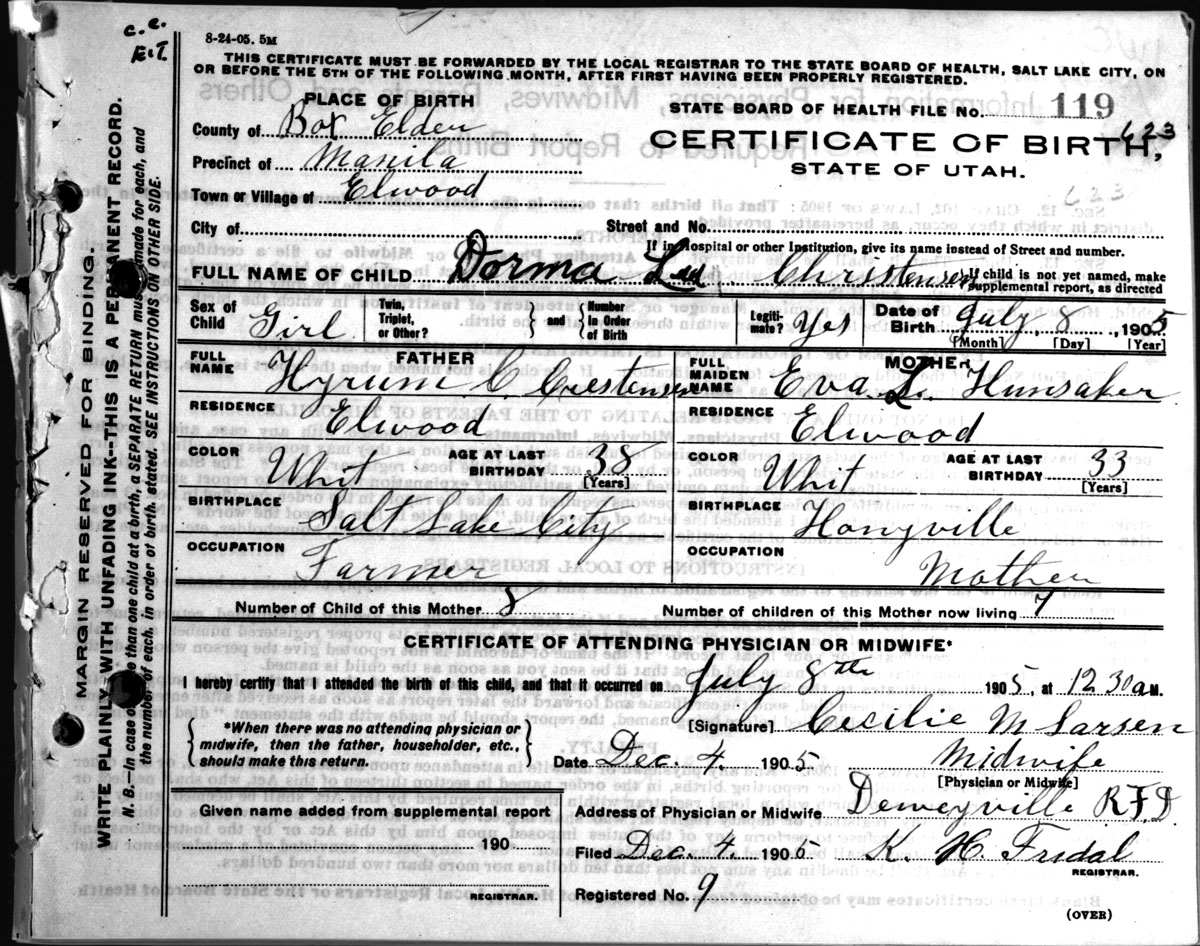 c. c.
E.T.
8-24-05. 5M
THIS CERTIFICATE MUST BE FORWARDED BY THE LOCAL REGISTRAR TO THE STATE BOARD OF HEALTH, SALT LAKE CITY, ON
OR BEFORE THE 5TH OF THE FOLLOWING MONTH, AFTER FIRST HAVING BEEN PROPERLY REGISTERED.
PLACE OF BIRTH
County of Box Elder
Precinct of Manila
Town or Village of Elwood
City of
STATE BOARD OF HEALTH FILE No. 119
623
CERTIFICATE OF BIRTH,
STATE OF UTAH.
623
Street and No.
If in Hospital or other Institution, give its name instead of Street and number.
FULL NAME OF CHILD Dorma Christensen
If child is not yet named, make
supplemental report, as directed
Sex of Child Girl
Twin, Triplet, or Other? } and { Number in Order of Birth
Legiti-mate? Yes
Date of Birth July 8, 1905
[Month] [Day] [Year]
FATHER
FULL NAME Hyrum C. Crestensen
RESIDENCE Elwood
COLOR Whit AGE AT LAST BIRTHDAY 38 [Years]
BIRTHPLACE Salt Lake City
OCCUPATION Farmer
MOTHER
FULL MAIDEN NAME Eva L. Hunsaker
RESIDENCE Elwood
COLOR Whit AGE AT LAST BIRTHDAY 33 [Years]
BIRTHPLACE Honyville
OCCUPATION Mother
Number of Child of this Mother 8
Number of children of this Mother now living 7
CERTIFICATE OF ATTENDING PHYSICIAN OR MIDWIFE*
I hereby certify that I attended the birth of this child, and that it occurred on July 8th 1905, at 12 30 a M.
{ *When there was no attending physician or
midwife, then the father, householder, etc.,
should make this return. }
[Signature] Cecilie M Larsen
Date Dec. 4. 1905. Midwife
[Physician or Midwife]
Given name added from supplemental report
190
REGISTRAR.
Address of Physician or Midwife Deweyville R.F.D.
Filed Dec. 4. 1905 K. H. Fridal
REGISTRAR.
Registered No. 9
(OVER)
MARGIN RESERVED FOR BINDING.
WRITE PLAINLY WITH UNFADING INK--THIS IS A PERMANENT RECORD.
N. B.—In case of more than one child at a birth, a SEPARATE RETURN must be made for each, and
the number of each, in order of birth, stated. SEE INSTRUCTIONS ON OTHER SIDE.